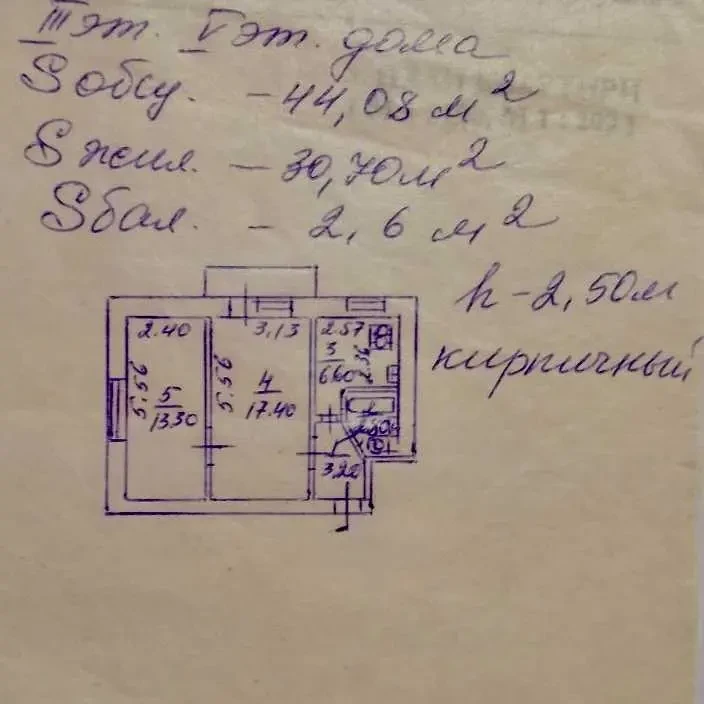 III эт. V эт. дома
S общ. - 44,08 м²
S жил. - 30,70 м²
S бал. - 2,6 м²
h - 2,50м
кирпичный
2.40
3,13
2.57
5.56
5.56
2.36
3
6.60
4
17.40
5
13.30
3.22